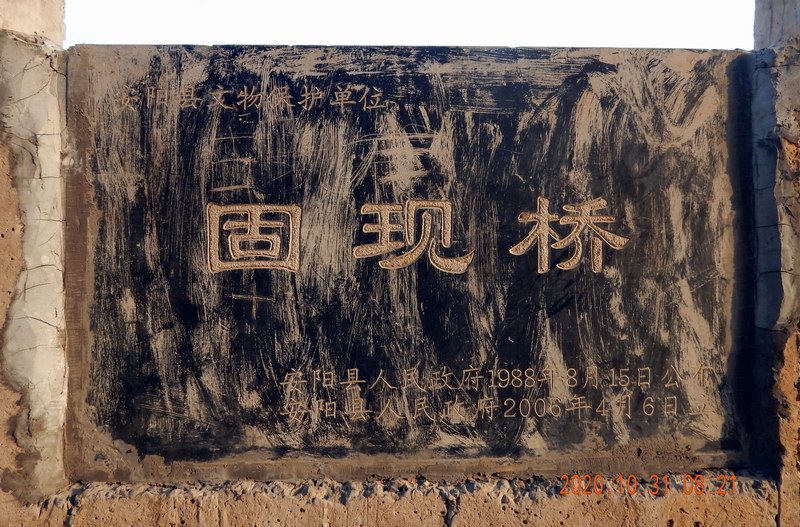 安阳县文物保护单位
固现桥
安阳县人民政府1988年8月15日公
安阳县人民政府2006年4月6日立
2020.10.31 08:21